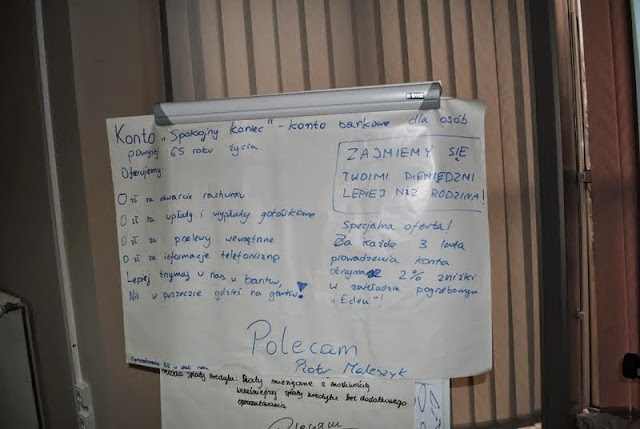 Konto „Spokojny koniec" - konto bankowe dla osób
powyżej 65 roku życia.
Oferujemy:
0 zł za otwarcie rachunku
0 zł za wpłaty i wypłaty gotówkowe
0 zł za przelewy wewnętrzne
0 zł za informacje telefoniczną
Lepiej trzymaj u nas w banku,
Niż w puszeczce gdzieś na ganku!
ZAJMIEMY SIĘ
TWOIMI PIENIĘDZMI
LEPIEJ NIŻ RODZINA!
Specjalna oferta!
Za każde 3 lata
prowadzenia konta
otrzymasz 2% zniżki
w zakładzie pogrzebowym
„Eden"!
Polecam
Piotr Maleszyk
spłaty kredytu: Raty miesięczne z możliwością
wcześniejszej spłaty kredytu bez dodatkowego
oprocentowania
Polecam